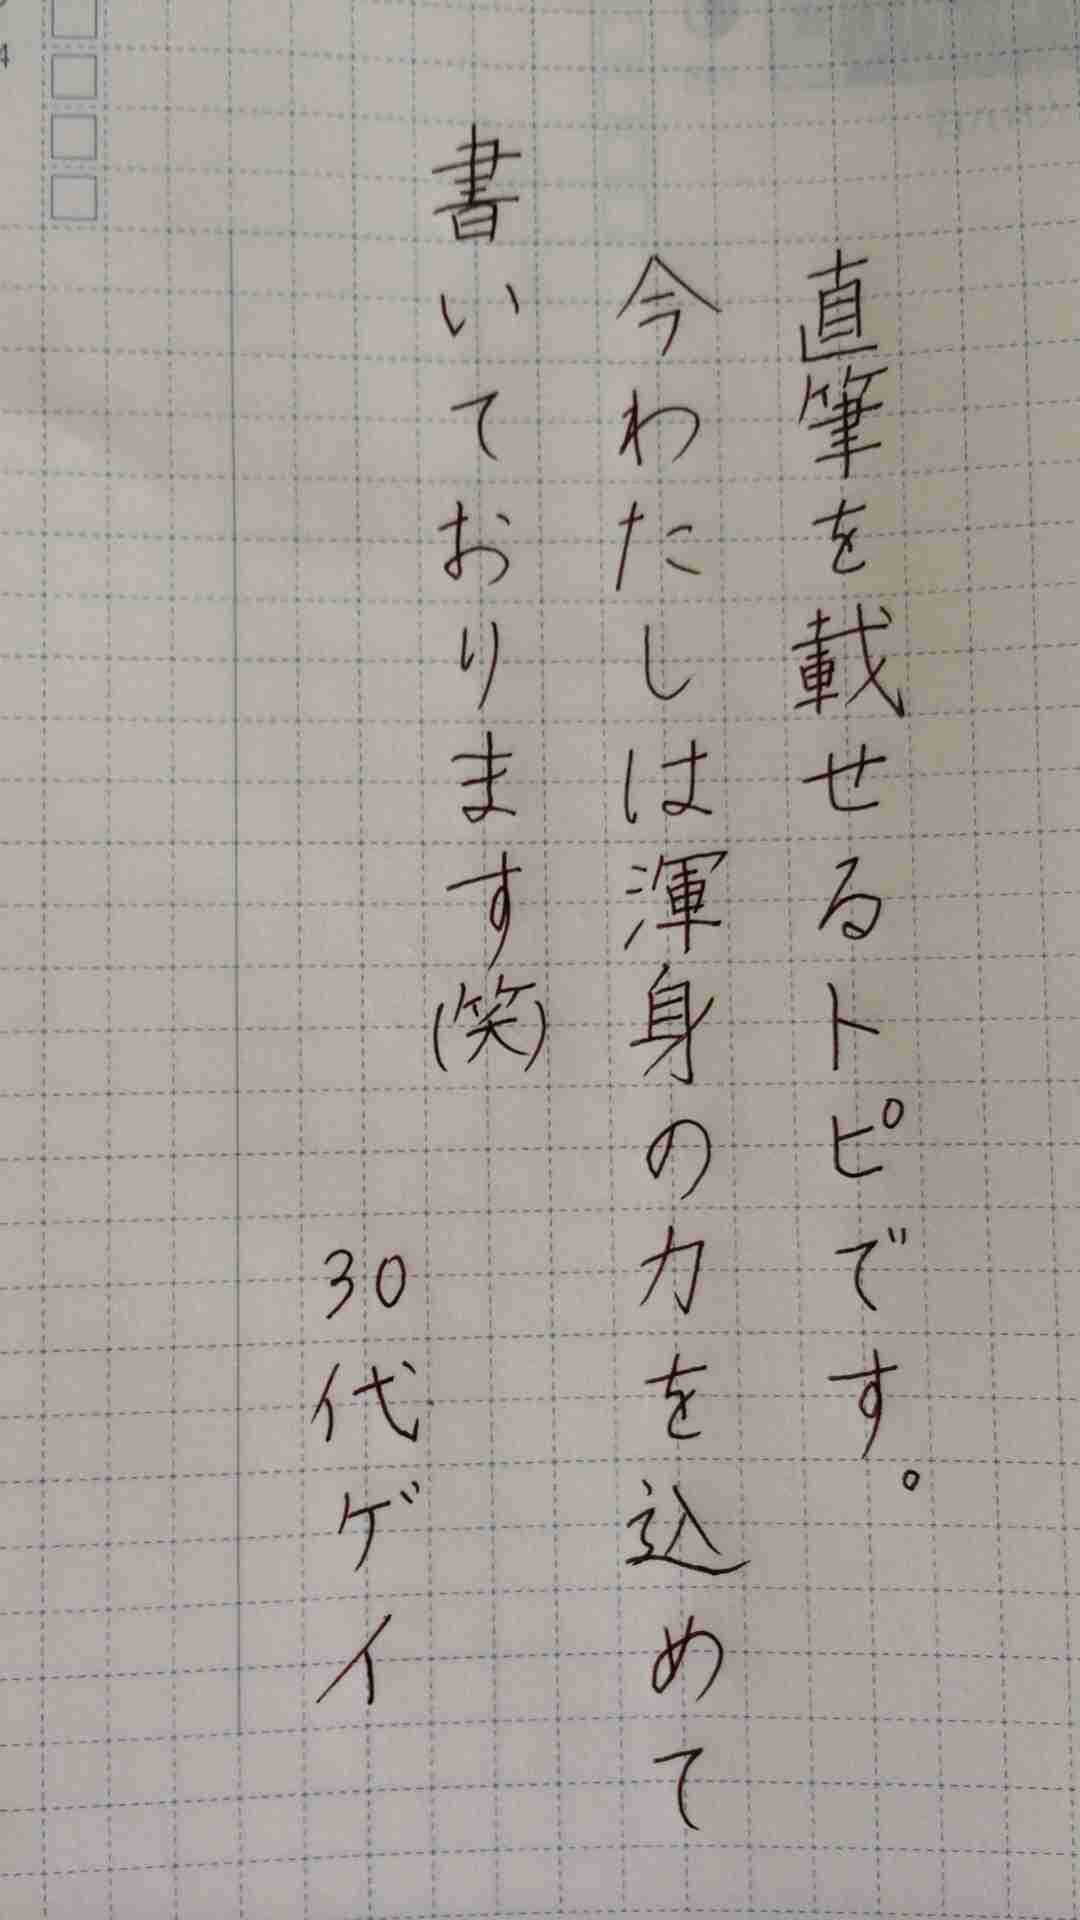 直筆を載せるトピです。
今わたしは渾身の力を込めて
書いております(笑)
30代ゲイ